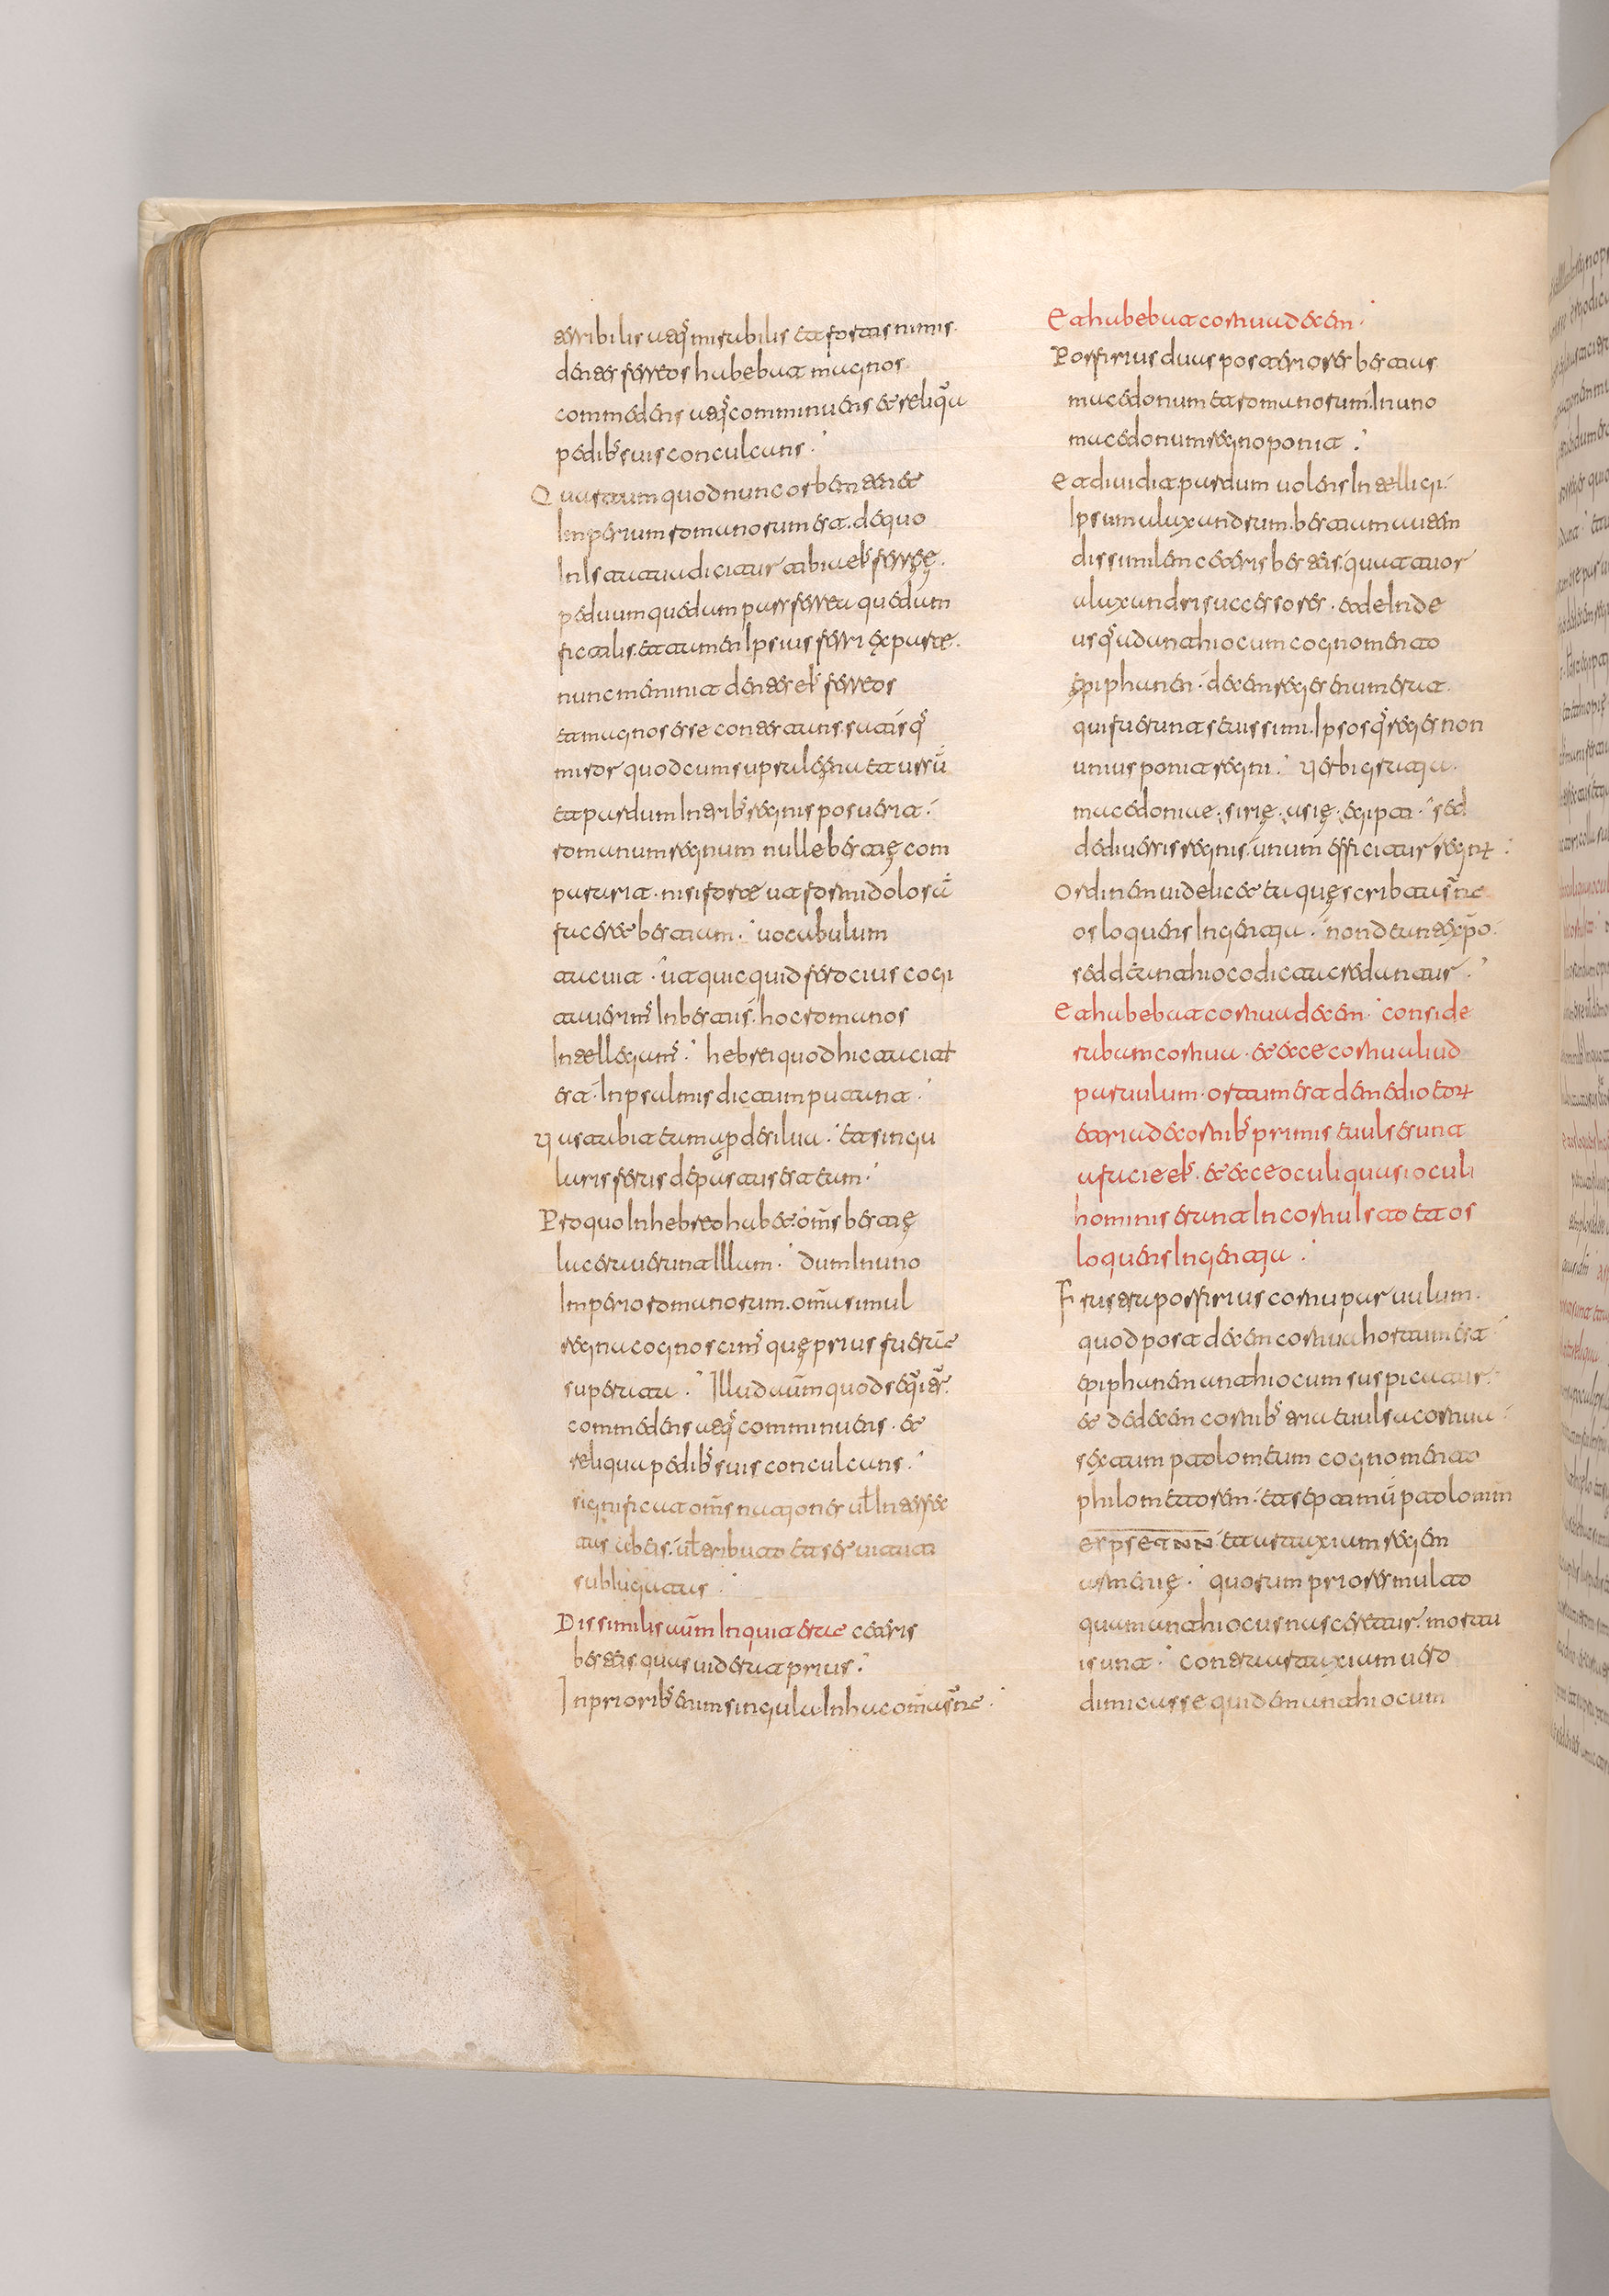 terribilis atq; mirabilis et fortis nimis.
dentes ferreos habebat magnos.
commedens atq; comminuens et reliqua
pedib; suis conculcans.
Quartum quod nunc orbem tenet
Imperium romanorum est. de quo
In statua dicitur tibiae ei; ferreę.
pedum quędam pars ferrea quędam
fictilis. et tamen Ipsius ferri ex parte.
nunc meminit dentes ei; ferreos
et magnos esse contestans. satis q;
miror quod cum supra leęna et ursū
et pardum In trib; regnis posuerit.
romanum regnum nulle bestię com
pararit. nisi forte ut formidolosā
faceret bestiam. uocabulum
tacuit. ut quicquid ferocius cogi
tauerim; In bestiis. hoc romanos
Intellegam;. hebrei quod hic tacitū
est. In psalmis dictum putant.
Uastabit eum aper de silua. et singu
laris ferus depastus est eum.
Pro quo In hebreo habet. om̄s bestię
lacerauerunt Illum. dum In uno
Imperio romanorum. om̄a simul
regna cognoscim; quę prius fuerant
seperata. Illud autm̄ quod sequitr̄.
commedens atq; comminuens. et
reliqua pedib; suis conculcans.
significat om̄s nationes ut̄ Interfec
tas ab eis. ut̄ tributo et seruituti
subiugatas.
Dissimilis autm̄ Inquit erat ceteris
besteis quas uiderat prius.
In priorib; enim singula. In hac om̄a s̄ne.
Et habebat cornua decem.
Porfirius duas posteriores bestias
macedonum et romanorum. In uno
macedonum regno ponit.
Et diuidit. pardum uolens Intelligi.
Ipsum aluxandrum. bestiam autem
dissimilem ceteris besteis. quattuor
aluxandri successores. et deInde
usq; ad antiocum cognomento
epiphanen. decem reges enumerat.
qui fuerunt seuissimi. Ipsosq; reges non
unius ponit regni. uerbi gratia.
macedoniae. sirię. asię. egipti. sed
de diuersis regnis. unum efficiatur regn̄.
Ordinem uidelicet. ut quę scribta s̄ne
os loquens Ingentia. non de antexp̄o.
sed de antioco dicta credantur.
Et habebat cornua decem. conside
rabam cornua. et ecce cornu aliud
paruulum. ortum est de medio eor̄
et tria de cornib; primis euulserunt
a facie ei;. et ecce oculi quasi oculi
hominis erunt In cornu Isto et os
loquens Ingentia.
Frustra porfirius cornu paruulum.
quod post decem cornua hortum est.
epiphanen antiocum suspicatur.
et de decem cornib; tria euulsa cornua.
sextum ptolomeum cognomento
philometorem. et septimū ptolomeum
et artaxium regem
armenię. quorum priores multo
quam antiocus nasceretur. mortui
sunt. contra artaxium uero
dimicasse quidem antiocum